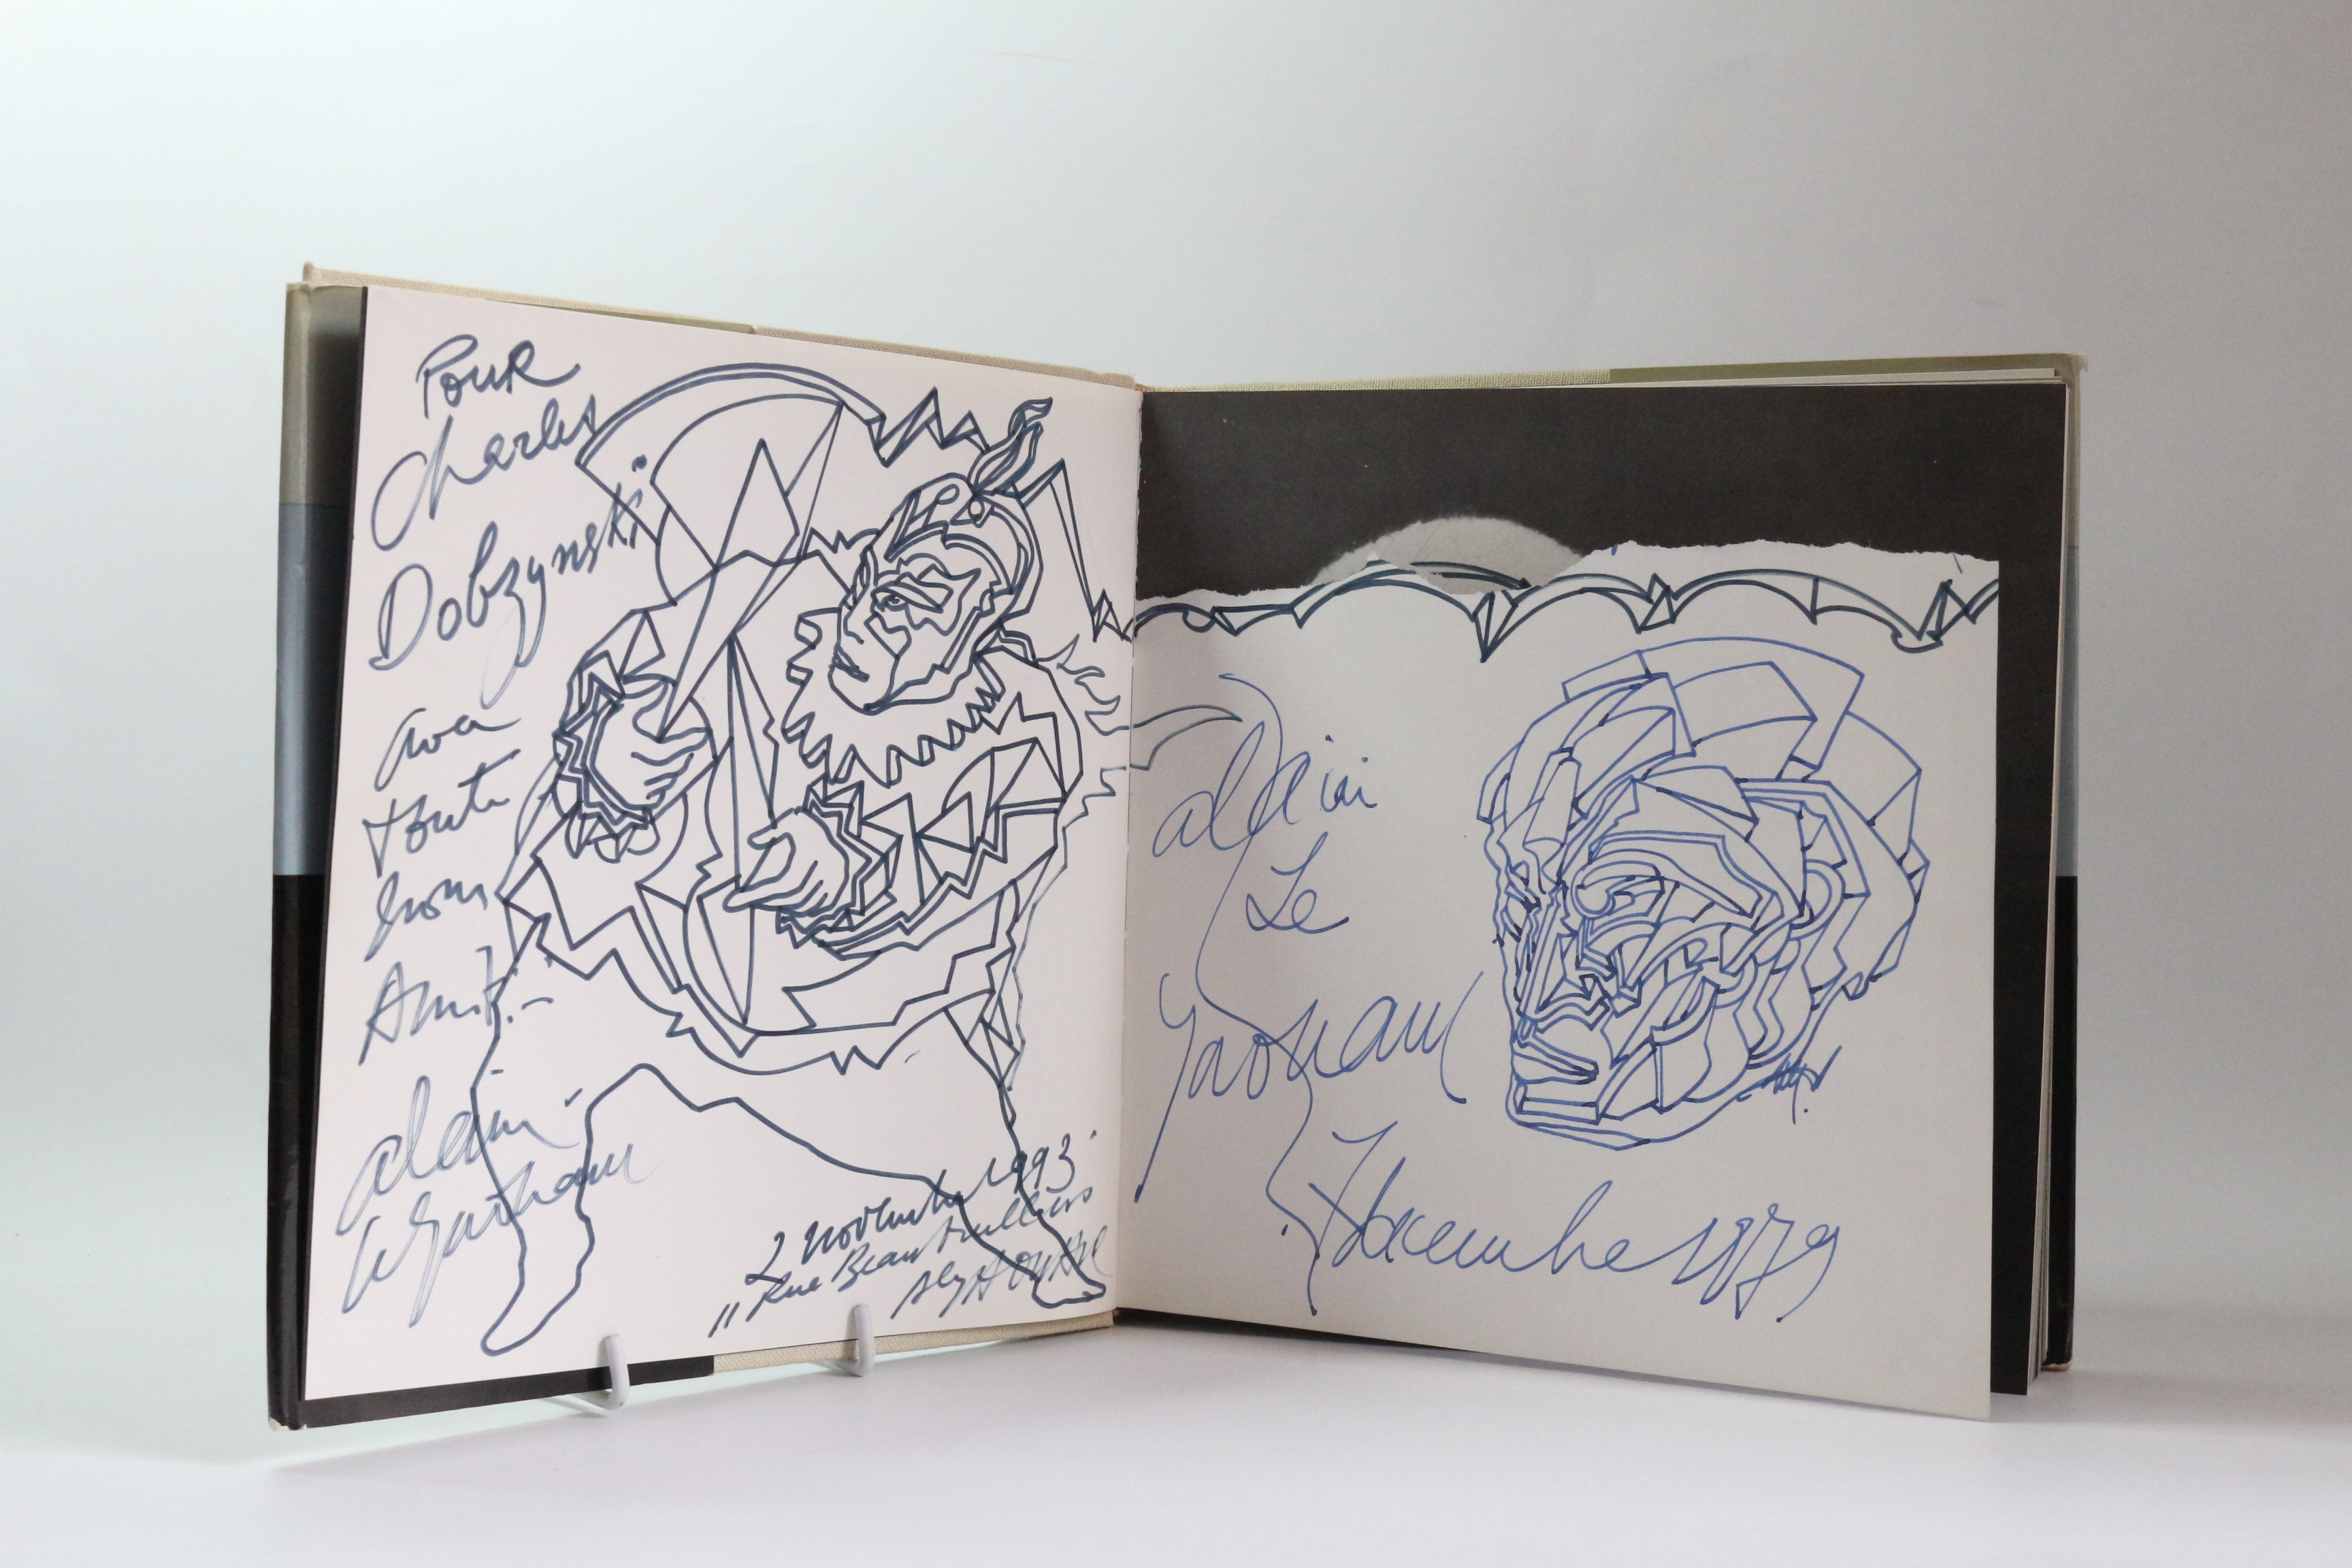 Pour
Charles
Dobzynski
avec
toute
mon
Amitié
alain
le yaouanc
2 novembre 1993
"Rue Beautreillis
alain
Le
yaouanc
7 decembre 1979